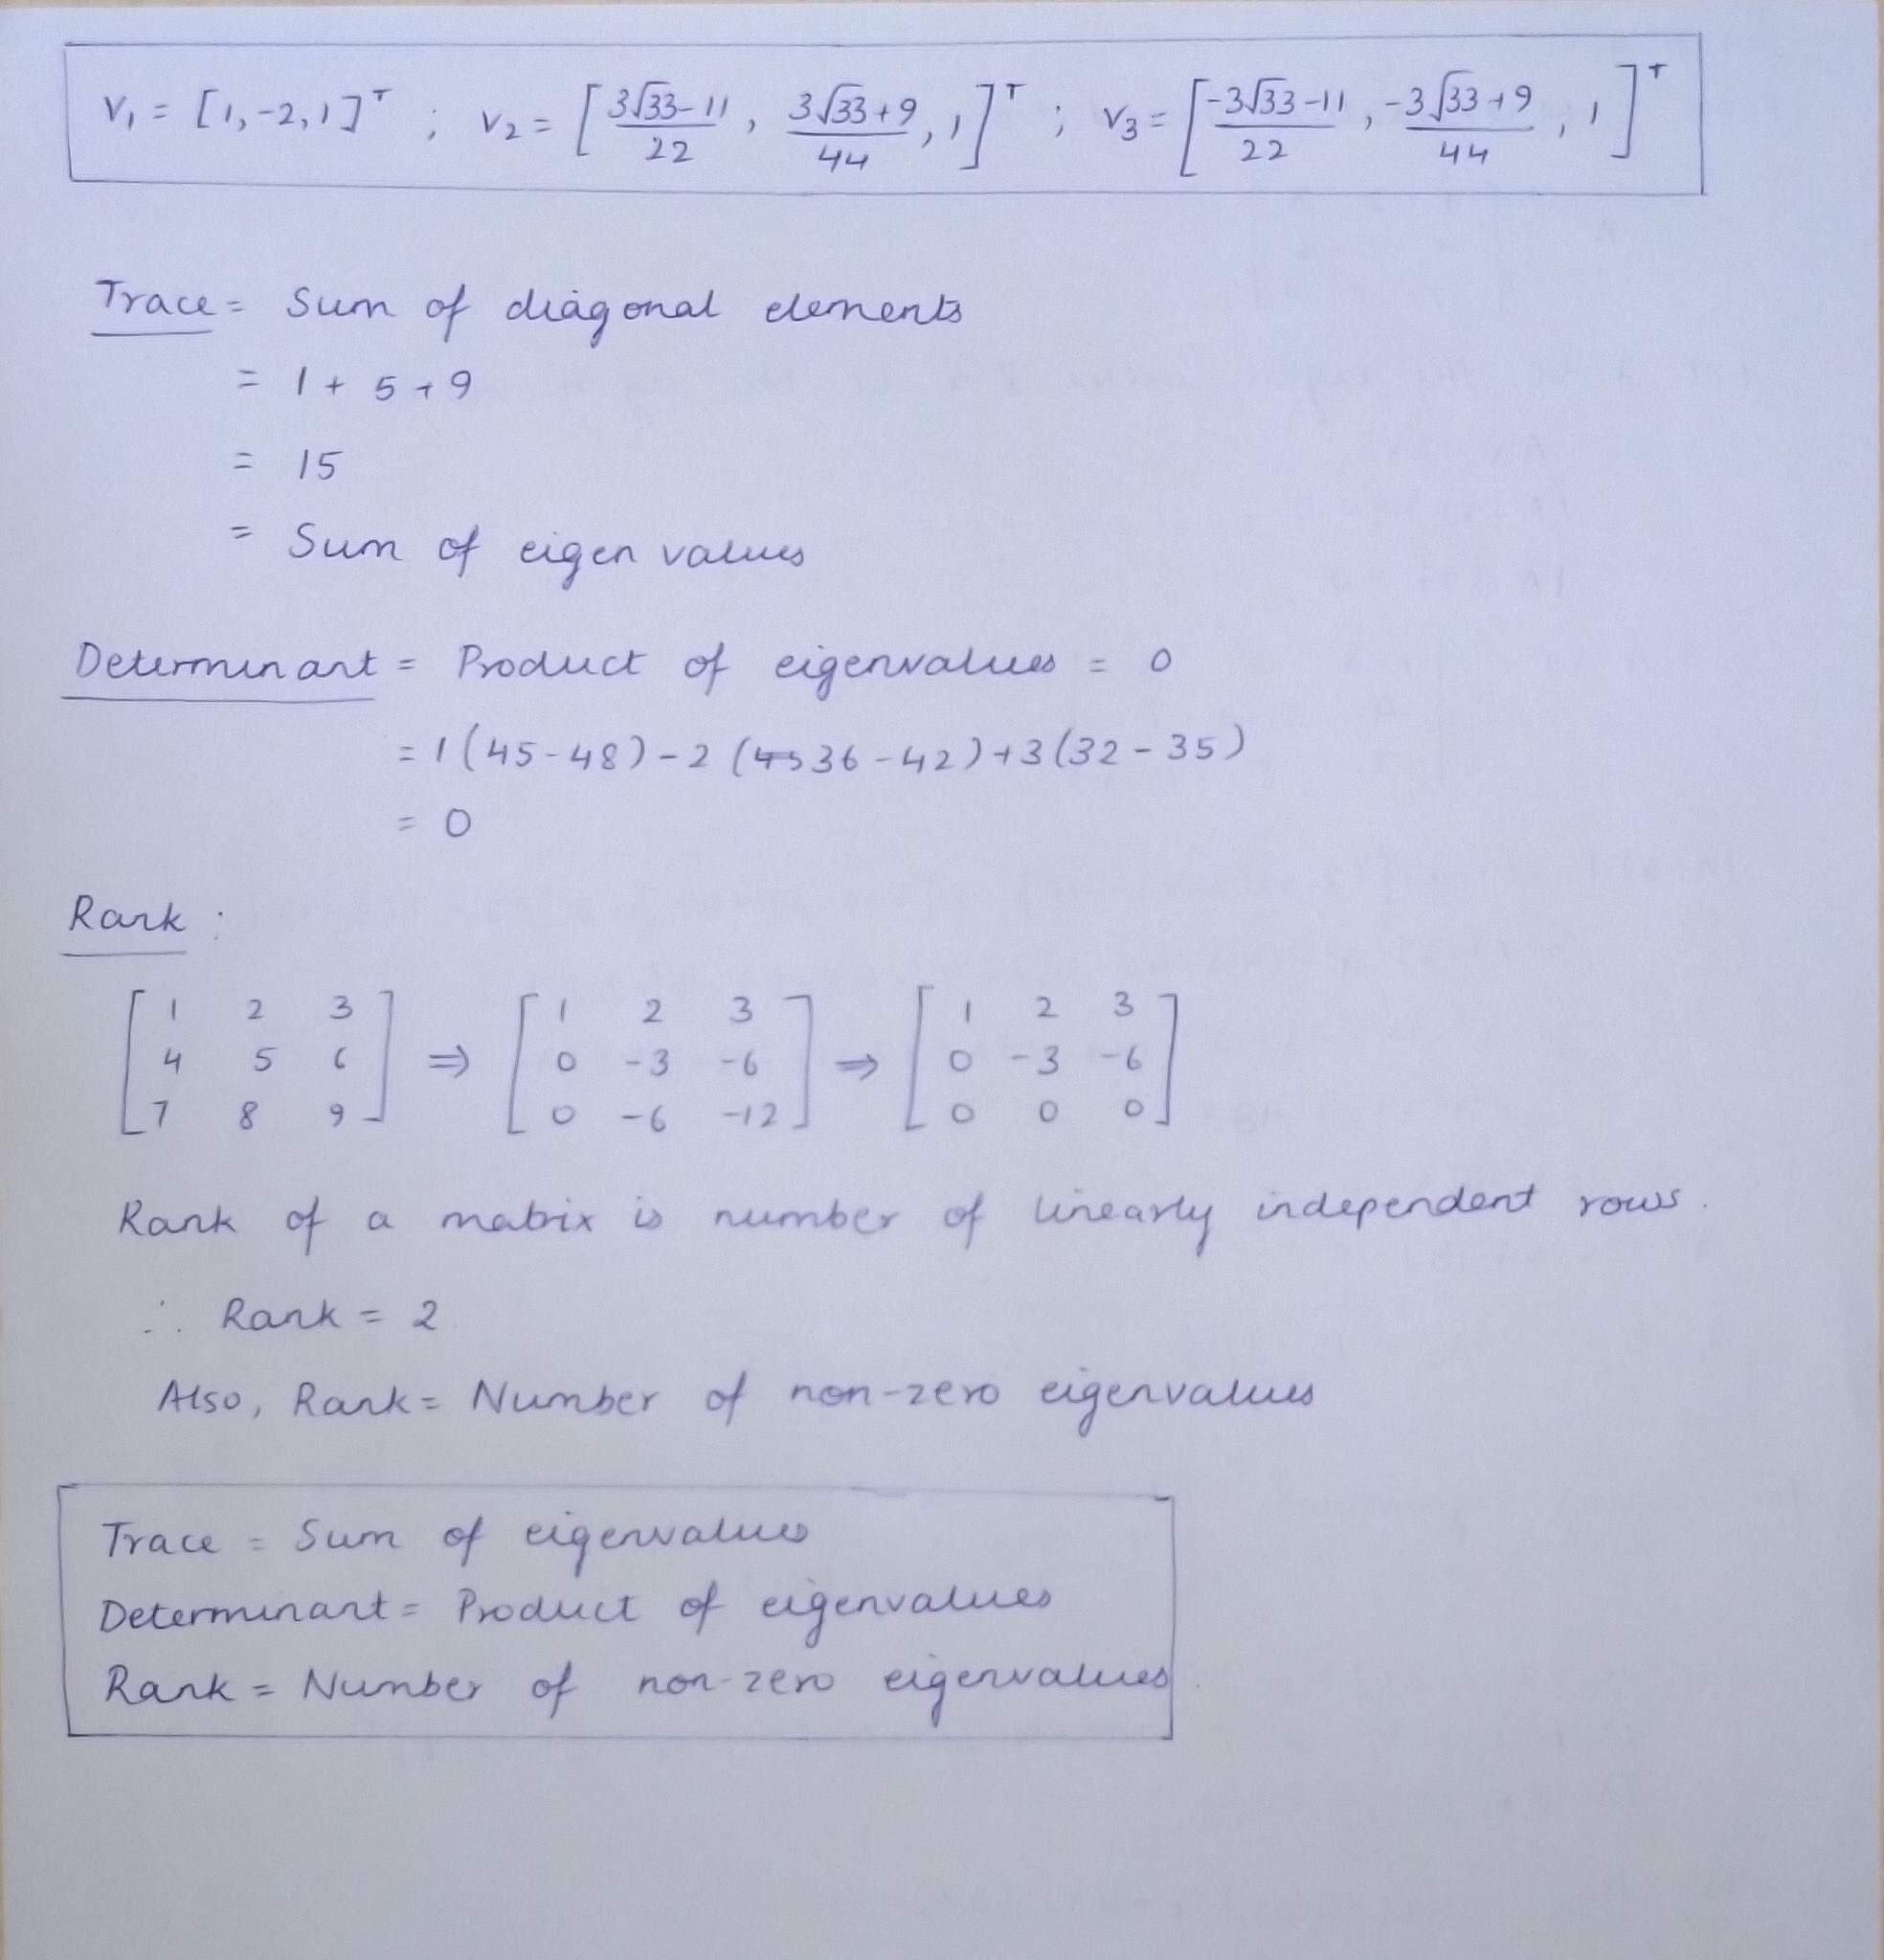 V₁ = [1, -2, 1]ᵀ ; V₂ = [ (3√33-11)/22 , (3√33+9)/44 , 1 ]ᵀ ; V₃ = [ (-3√33-11)/22 , (-3√33+9)/44 , 1 ]ᵀ
Trace = Sum of diagonal elements
= 1 + 5 + 9
= 15
= Sum of eigen values
Determinant = Product of eigenvalues = 0
= 1(45-48) - 2(36-42) + 3(32-35)
= 0
Rank :
[ 1 2 3 ] [ 1 2 3 ] [ 1 2 3 ]
[ 4 5 6 ] ⇒ [ 0 -3 -6 ] ⇒ [ 0 -3 -6 ]
[ 7 8 9 ] [ 0 -6 -12 ] [ 0 0 0 ]
Rank of a matrix is number of linearly independent rows.
∴ Rank = 2
Also, Rank = Number of non-zero eigenvalues
Trace = Sum of eigenvalues
Determinant = Product of eigenvalues
Rank = Number of non-zero eigenvalues.